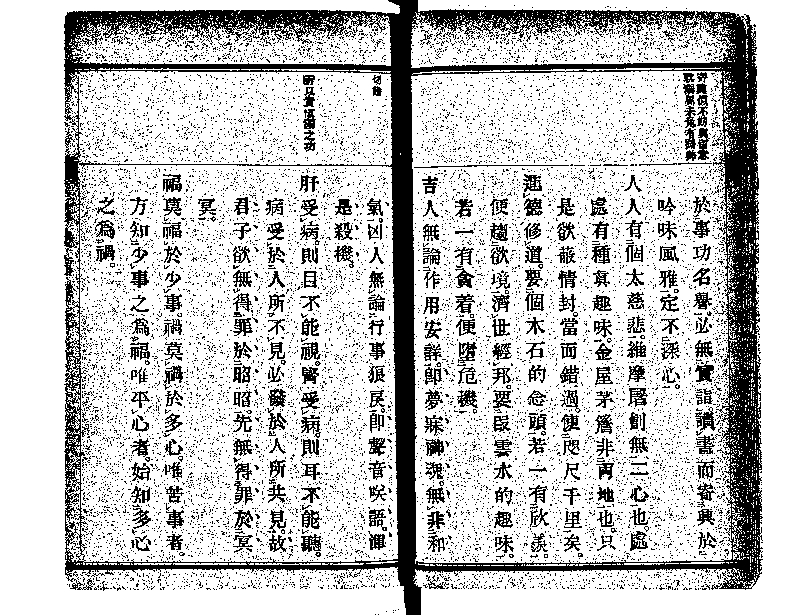 於事功名譽必無實詣讀書而寄興於
吟咏風雅定不深心
人人有個大慈悲維摩屠劊無二心也處
處有種眞趣味金屋茅簷非兩地也只
是欲蔽情封當面錯過便咫尺千里矣
進德修道要個木石的念頭若一有欣羨
便趨欲境濟世經邦要段雲水的趣味
若一有貪着便墮危機
吉人無論作用安詳卽夢寐神魂無非和
切諭
氣凶人無論行事狠戾卽聲音咲語渾
是殺機
肝受病則目不能視腎受病則耳不能聽
病受於人所不見必發於人所共見故
君子欲無得罪於昭昭先無得罪於冥
冥
福莫福於少事禍莫禍於多心唯苦事者
方知少事之爲福唯平心者始知多心
之爲禍